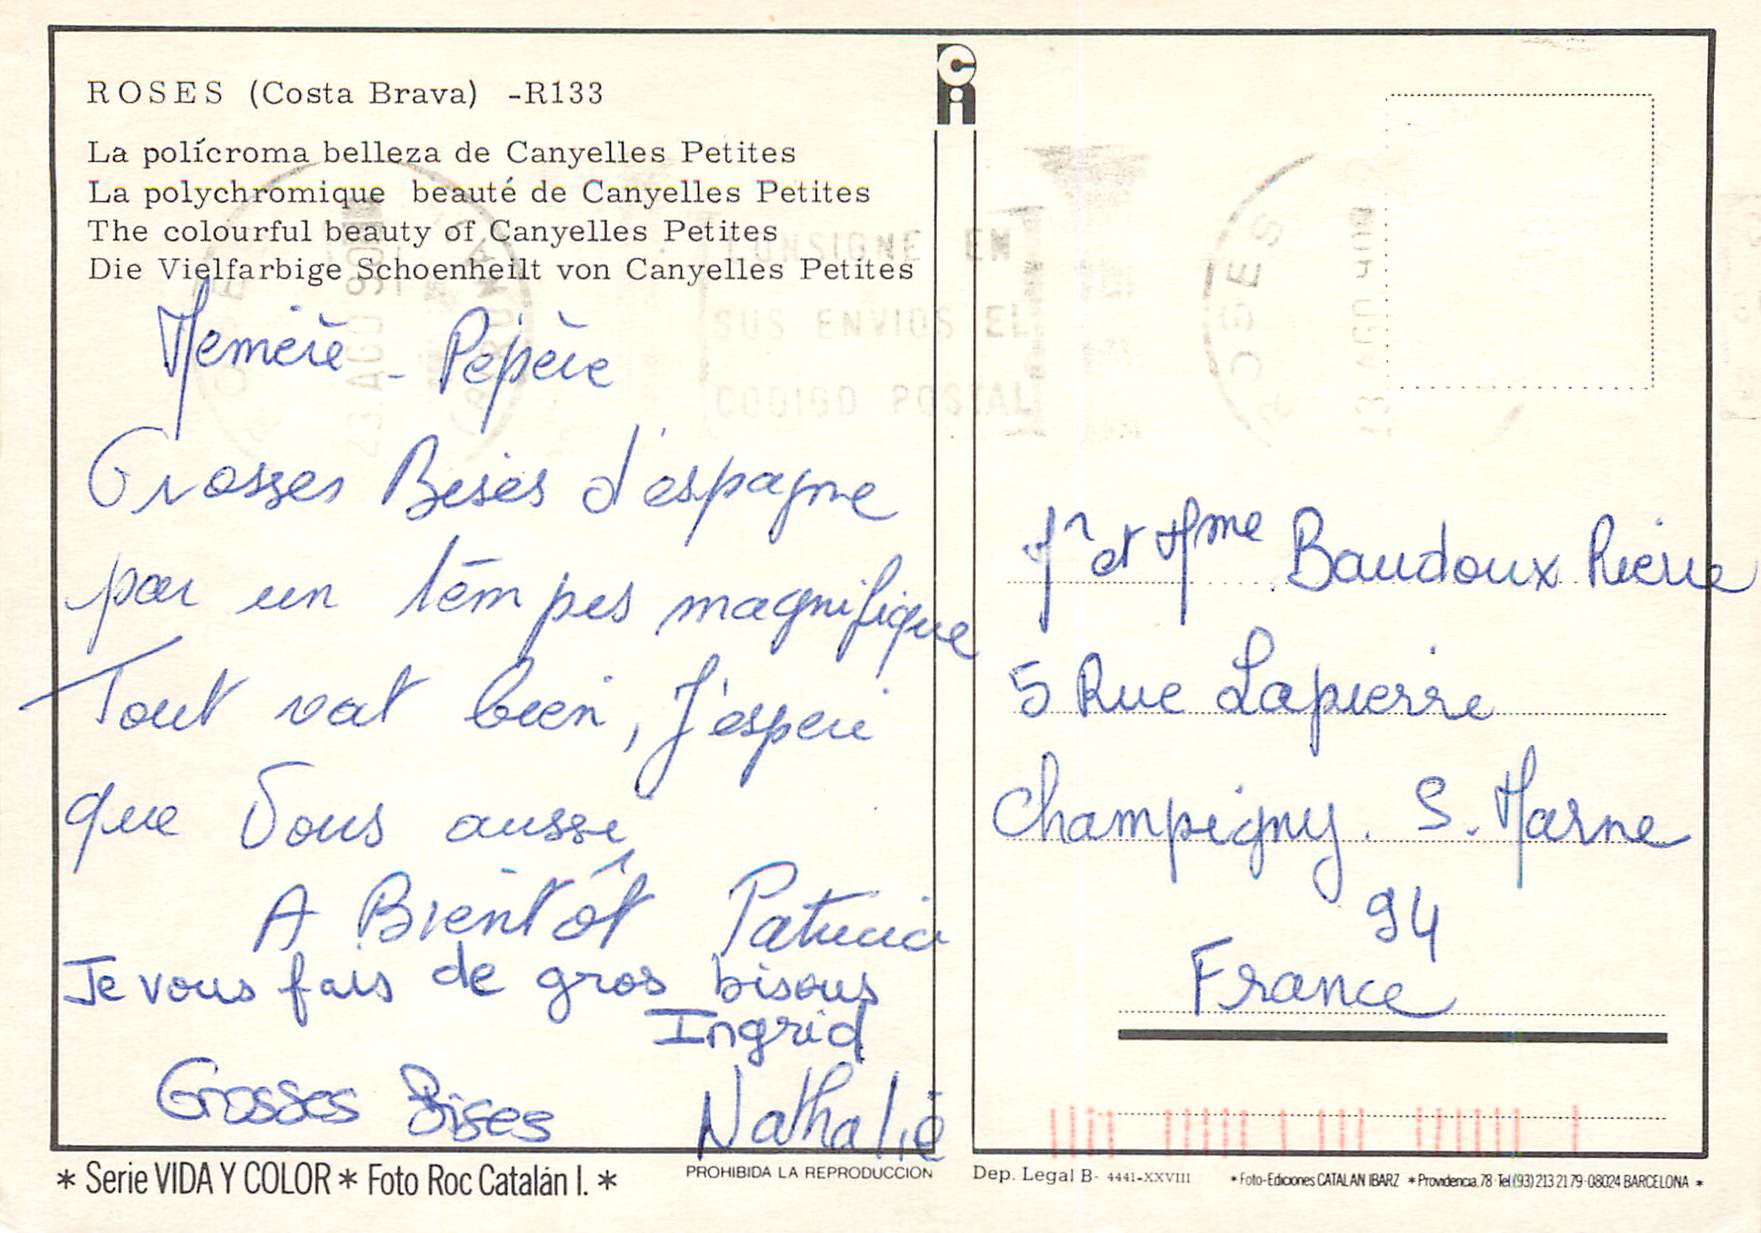 ROSES (Costa Brava) -R133
La polícroma belleza de Canyelles Petites
La polychromique beauté de Canyelles Petites
The colourful beauty of Canyelles Petites
Die Vielfarbige Schoenheilt von Canyelles Petites
CONSIGNE EN
SUS ENVIOS EL
CODIGO POSTAL
ROSES
23 AGO 90
Memère - Pepère
Grosses Bises d'espagne
par un temps magnifique
Tout vat bien, J'espere
que Vous aussi
A Bientôt Patricia
Je vous fais de gros bisous
Ingrid
Grosses Bises Nathalie
Mr et Mme Baudoux Pierre
5 Rue Lapierre
Champigny. S. Marne
94
France
* Serie VIDA Y COLOR * Foto Roc Catalán I. *
PROHIBIDA LA REPRODUCCION
Dep. Legal B- 4441-XXVIII
* Foto-Ediciones CATALAN IBARZ * Providencia, 78 - Tel (93) 213 21 79 - 08024 BARCELONA *